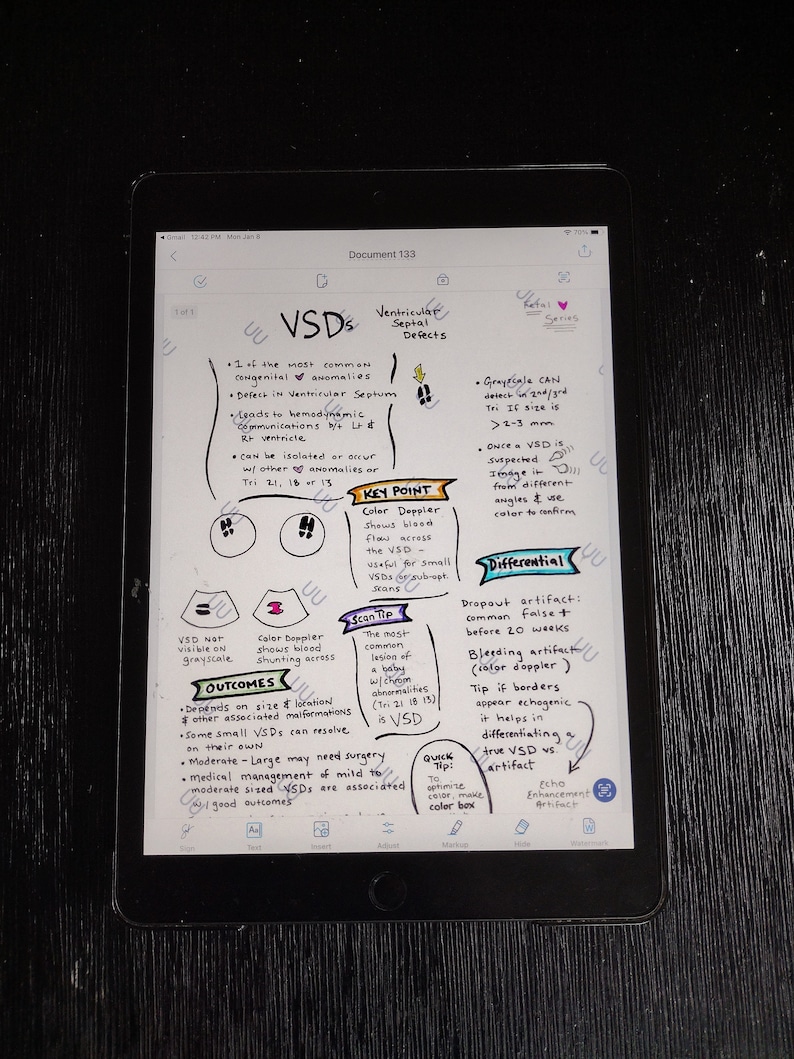 Gmail 12:42 PM Mon Jan 8
70%
Document 133
1 of 1
VSDs
Ventricular
Septal
Defects
Fetal
Series
• 1 of the most common
congenital anomalies
• Defect in Ventricular Septum
• Leads to hemodynamic
communications b/t Lt &
Rt ventricle
• can be isolated or occur
w/ other anomalies or
Tri 21, 18 or 13
• Grayscale CAN
detect in 2nd/3rd
Tri If size is
> 2-3 mm
• Once a VSD is
suspected
Image it
from different
angles & use
color to confirm
KEY POINT
Color Doppler
shows blood
flow across
the VSD -
useful for small
VSDs or sub-opt.
scans
VSD Not
visible on
grayscale
Color Doppler
shows blood
shunting across
Scan Tip
The most
common
lesion of
a baby
w/ chrom
abnormalities
(Tri 21 18 13)
is VSD
Differential
Dropout artifact:
common false +
before 20 weeks
Bleeding artifact
(color doppler)
Tip if borders
appear echogenic
it helps in
differentiating a
true VSD vs.
artifact
Echo
Enhancement
Artifact
OUTCOMES
• Depends on size & location
& other associated malformations
• Some small VSDs can resolve
on their own
• Moderate - Large may need surgery
• medical management of mild to
moderate sized VSDs are associated
w/ good outcomes
QUICK
Tip:
To
optimize
color, make
color box
Sign
Text
Insert
Adjust
Markup
Hide
Watermark
UU
UU
UU
UU
UU
UU
UU
UU
UU
UU
UU
UU